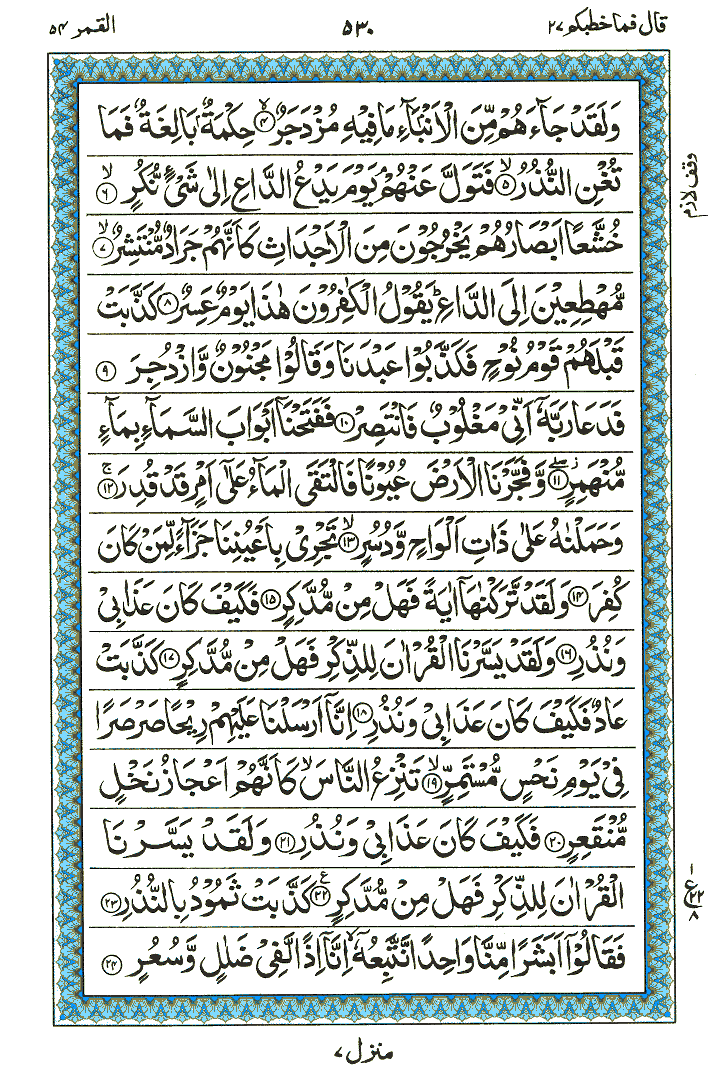 قال فما خطبكم ٢٧ ٥٣٠ القمر ٥٤
وَلَقَدۡ جَآءَهُمۡ مِّنَ الۡاَنۡۢبَآءِ مَا فِيۡهِ مُزۡدَجَرٌۙ ﴿۴﴾ حِكۡمَةٌۢ بَالِغَةٌ فَمَا
تُغۡنِ النُّذُرُۙ ﴿۵﴾ فَتَوَلَّ عَنۡهُمۡ يَوۡمَ يَدۡعُ الدَّاعِ اِلٰى شَىۡءٍ نُّكُرٍۙ ﴿۶﴾
وقف لازم
خُشَّعًا اَبۡصَارُهُمۡ يَخۡرُجُوۡنَ مِنَ الۡاَجۡدَاثِ كَاَنَّهُمۡ جَرَادٌ مُّنۡتَشِرٌۙ ﴿۷﴾
مُّهۡطِعِيۡنَ اِلَى الدَّاعِؕ يَقُوۡلُ الۡكٰفِرُوۡنَ هٰذَا يَوۡمٌ عَسِرٌ ﴿۸﴾ كَذَّبَتۡ
قَبۡلَهُمۡ قَوۡمُ نُوۡحٍ فَكَذَّبُوۡا عَبۡدَنَا وَقَالُوۡا مَجۡنُوۡنٌ وَّازۡدُجِرَ ﴿۹﴾
فَدَعَا رَبَّهٗۤ اَنِّىۡ مَغۡلُوۡبٌ فَانۡتَصِرۡ ﴿۱۰﴾ فَفَتَحۡنَاۤ اَبۡوَابَ السَّمَآءِ بِمَآءٍ
مُّنۡهَمِرٍۖ ﴿۱۱﴾ وَّفَجَّرۡنَا الۡاَرۡضَ عُيُوۡنًا فَالۡتَقَى الۡمَآءُ عَلٰٓى اَمۡرٍ قَدۡ قُدِرَۚ ﴿۱۲﴾
وَحَمَلۡنٰهُ عَلٰى ذَاتِ اَلۡوَاحٍ وَّدُسُرٍۙ ﴿۱۳﴾ تَجۡرِىۡ بِاَعۡيُنِنَا جَزَآءً لِّمَنۡ كَانَ
كُفِرَ ﴿۱۴﴾ وَلَقَدْ تَّرَكۡنٰهَاۤ اٰيَةً فَهَلۡ مِنۡ مُّدَّكِرٍ ﴿۱۵﴾ فَكَيۡفَ كَانَ عَذَابِىۡ
وَنُذُرِ ﴿۱۶﴾ وَلَقَدۡ يَسَّرۡنَا الۡقُرۡاٰنَ لِلذِّكۡرِ فَهَلۡ مِنۡ مُّدَّكِرٍ ﴿۱۷﴾ كَذَّبَتۡ
عَادٌ فَكَيۡفَ كَانَ عَذَابِىۡ وَنُذُرِ ﴿۱۸﴾ اِنَّاۤ اَرۡسَلۡنَا عَلَيۡهِمۡ رِيۡحًا صَرۡصَرًا
فِىۡ يَوۡمِ نَحۡسٍ مُّسۡتَمِرٍّۙ ﴿۱۹﴾ تَنۡزِعُ النَّاسَۙ كَاَنَّهُمۡ اَعۡجَازُ نَخۡلٍ
مُّنۡقَعِرٍ ﴿۲۰﴾ فَكَيۡفَ كَانَ عَذَابِىۡ وَنُذُرِ ﴿۲۱﴾ وَلَقَدۡ يَسَّرۡنَا
الۡقُرۡاٰنَ لِلذِّكۡرِ فَهَلۡ مِنۡ مُّدَّكِرٍ ﴿۲۲﴾ع كَذَّبَتۡ ثَمُوۡدُ بِالنُّذُرِ ﴿۲۳﴾
١ ع ٢٢ ٨
فَقَالُوۡۤا اَبَشَرًا مِّنَّا وَاحِدًا نَّتَّبِعُهٗۤۙ اِنَّاۤ اِذًا لَّفِىۡ ضَلٰلٍ وَّسُعُرٍ ﴿۲۴﴾
منزل ٧